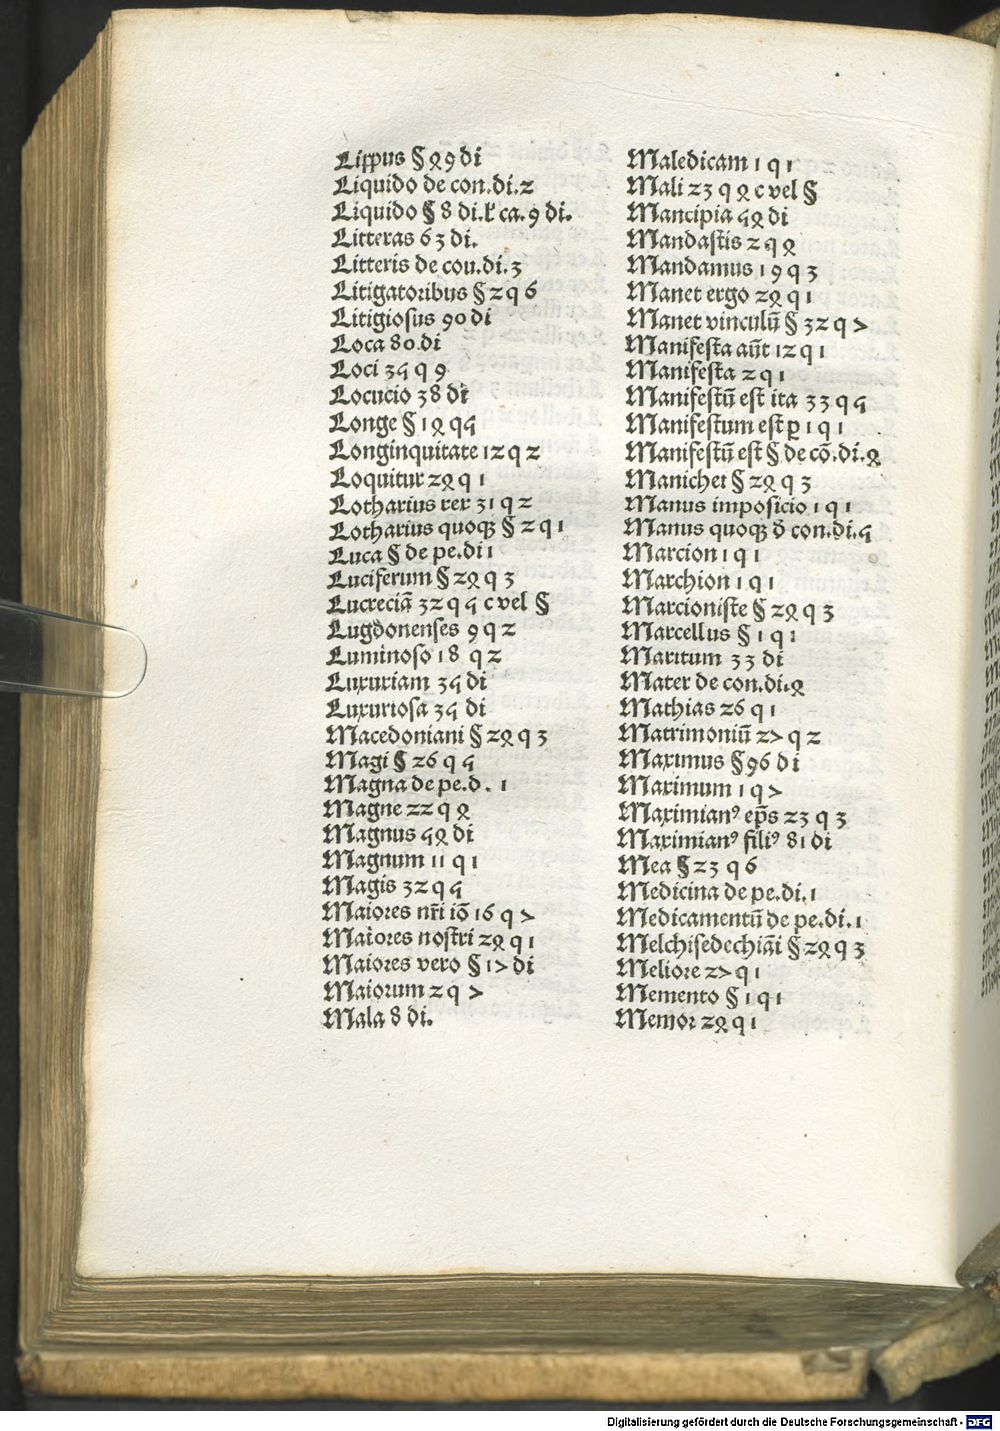 Lippus § 49 di
Liquido de con.di.2
Liquido § 8 di.ł ca.9 di.
Litteras 63 di.
Litteris de cou.di.3
Litigatoribus § 2 q 6
Litigiosus 90 di
Loca 80.di
Loci 35 q 9
Locucio 38 di
Longe § 14 q5
Longinquitate 12 q 2
Loquitur 24 q 1
Lotharius rex 31 q 2
Lotharius quoqꝫ § 2 q 1
Luca § de pe.di 1
Luciferum § 24 q 3
Lucreciā 32 q 5 c vel §
Lugdonenses 9 q 2
Luminoso 18 q 2
Luxuriam 35 di
Luxuriosa 35 di
Macedoniani § 24 q 3
Magi § 26 q 5
Magna de pe.d. 1
Magne 22 q 4
Magnus 54 di
Magnum 11 q 1
Magis 32 q 5
Maiores nr̄i iō 16 q 7
Maiores nostri 24 q 1
Maiores vero § 17 di
Maiorum 2 q 7
Mala 8 di.
Maledicam 1 q 1
Mali 23 q 4 c vel §
Mancipia 54 di
Mandastis 2 q 4
Mandamus 19 q 3
Manet ergo 24 q 1
Manet vinculū § 32 q 7
Manifesta aūt 12 q 1
Manifesta 2 q 1
Manifestū est ita 33 q 5
Manifestum est ꝑ 1 q 1
Manifestū est § de cō.di.4
Manichei § 24 q 3
Manus imposicio 1 q 1
Manus quoqꝫ d̄ con.di.5
Marcion 1 q 1
Marchion 1 q 1
Marcioniste § 24 q 3
Marcellus § 1 q 1
Maritum 33 di
Mater de con.di.4
Mathias 26 q 1
Matrimoniū 27 q 2
Maximus § 96 di
Maximum 1 q 7
Maximianꝰ ep̄s 23 q 3
Maximianꝰ filiꝰ 81 di
Mea § 23 q 6
Medicina de pe.di.1
Medicamentū de pe.di.1
Melchisedechiāi § 24 q 3
Meliore 27 q 1
Memento § 1 q 1
Memor 24 q 1
Digitalisierung gefördert durch die Deutsche Forschungsgemeinschaft - DFG